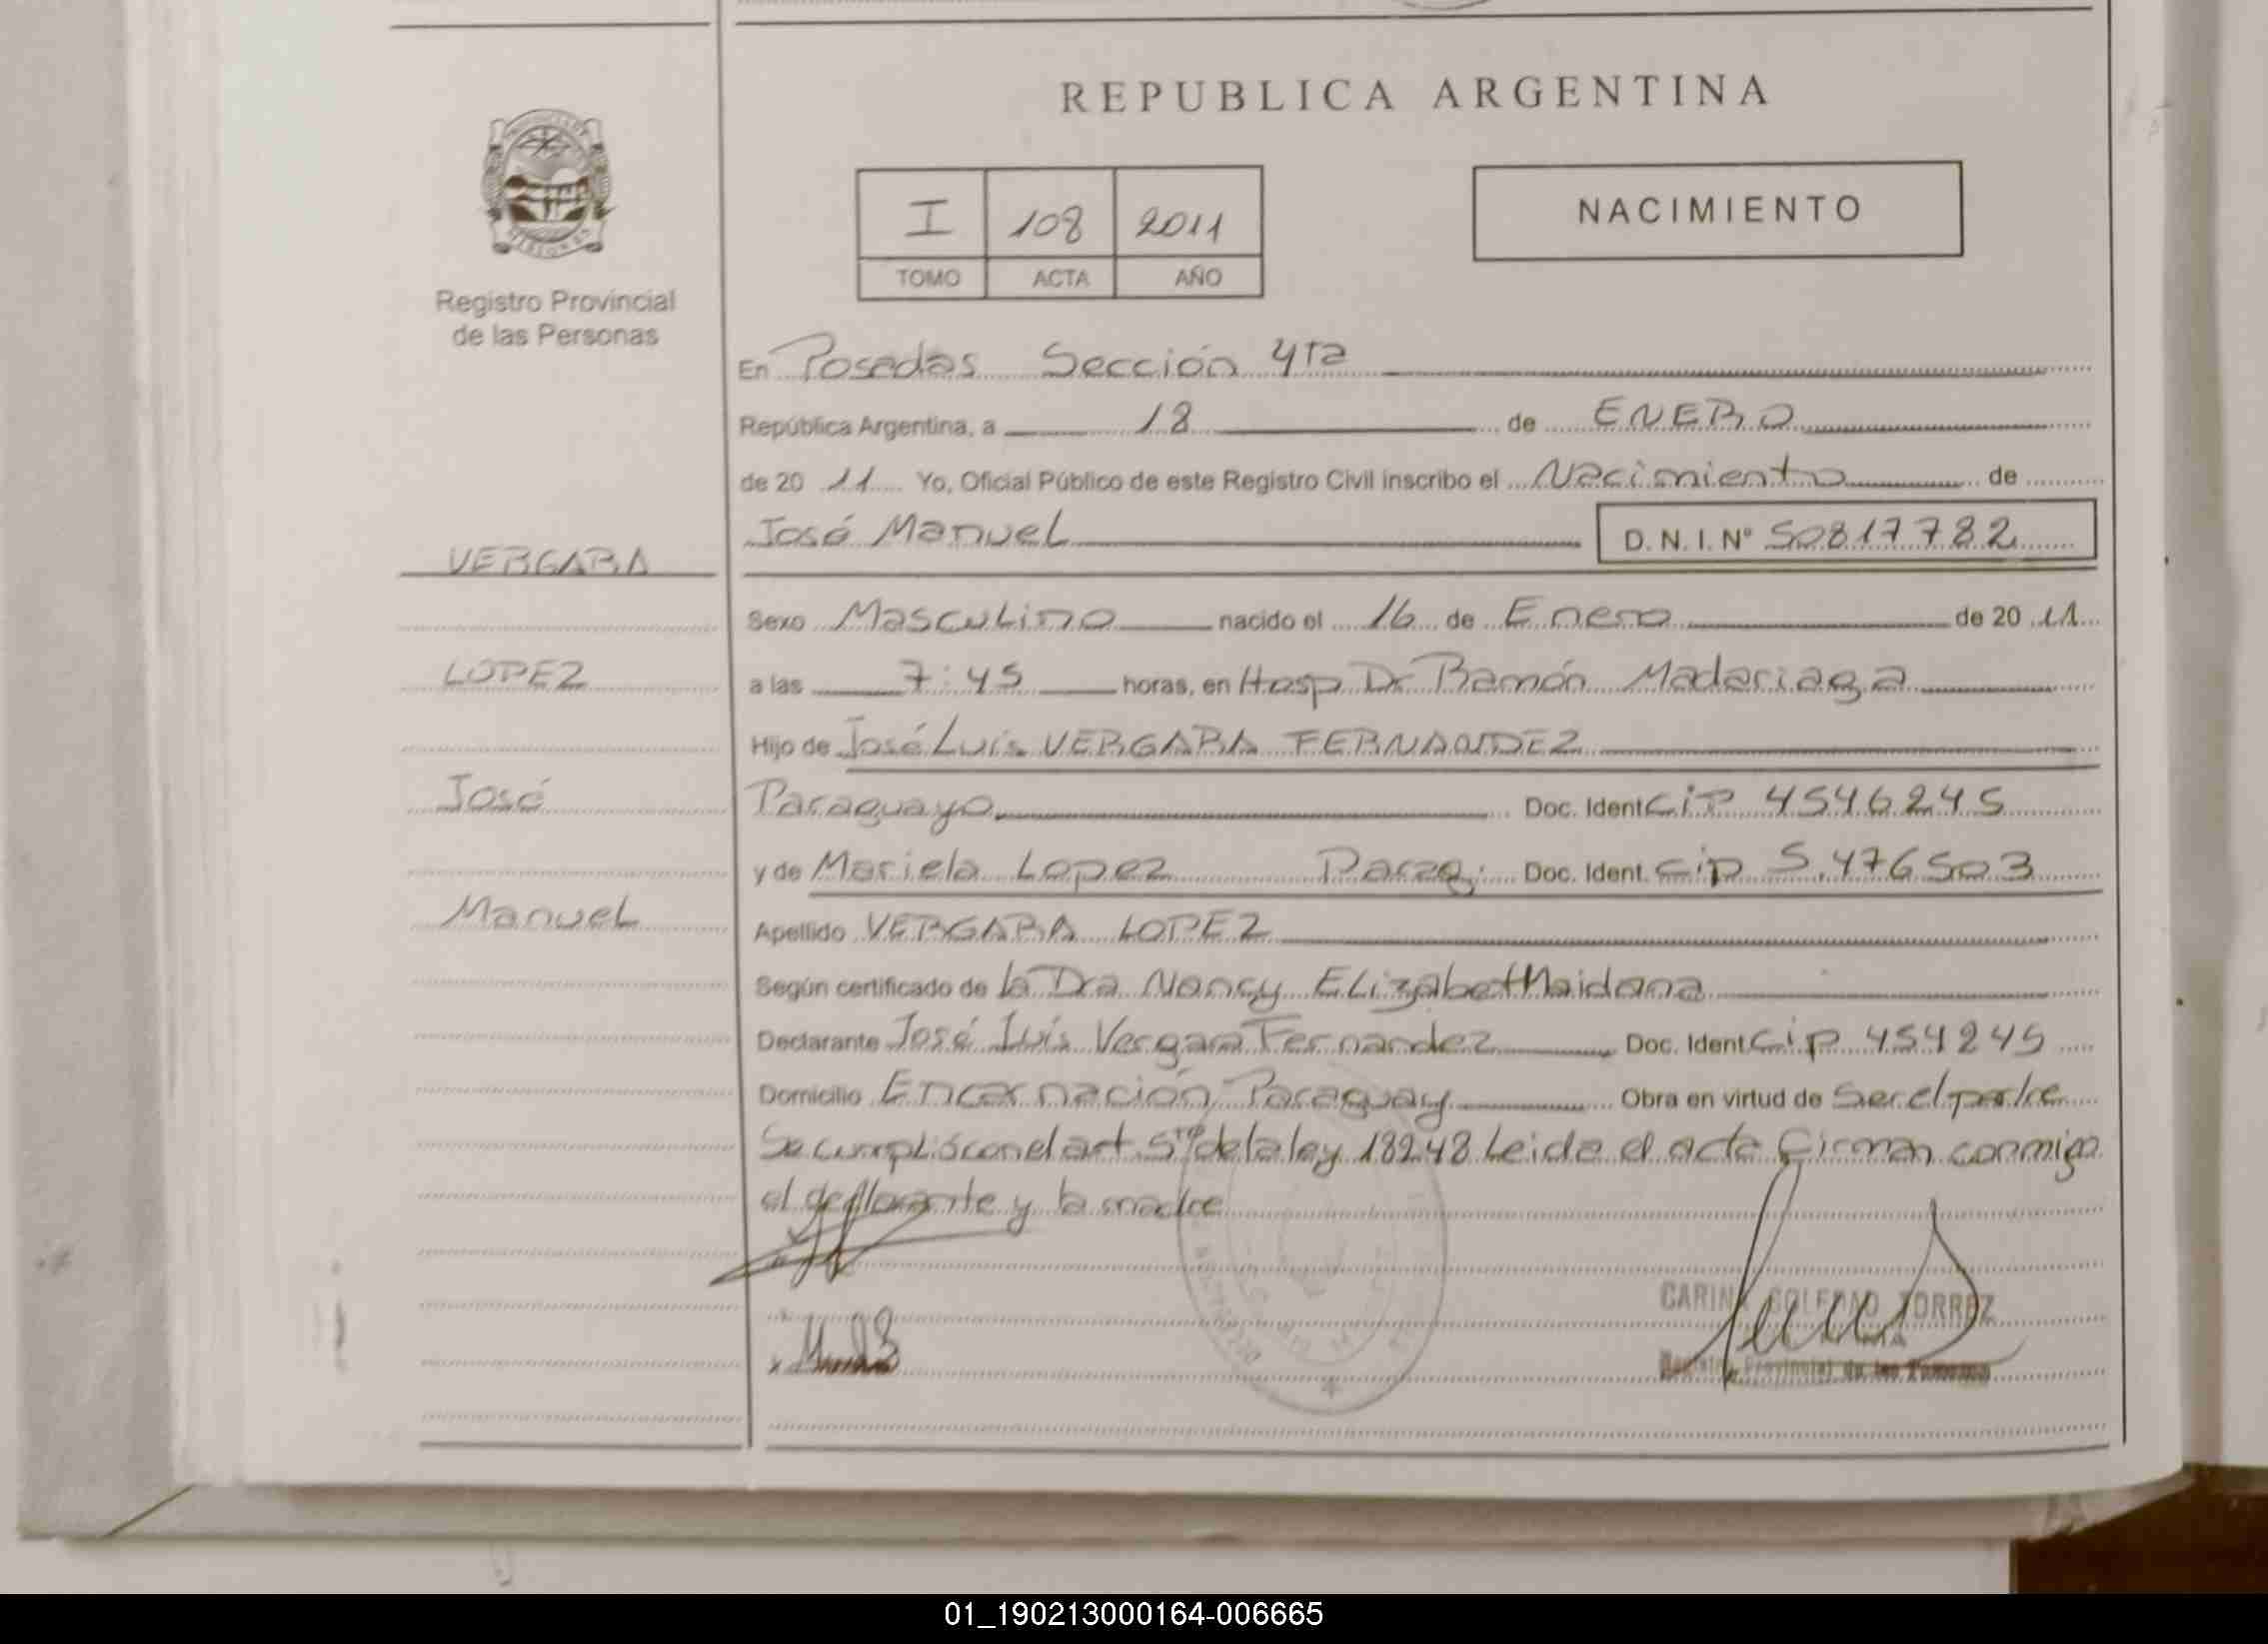 REPUBLICA ARGENTINA
I 108 2011
TOMO ACTA AÑO
NACIMIENTO
Registro Provincial
de las Personas
En Posadas Sección 4ta
República Argentina, a 18 de ENERO
de 20 11 Yo, Oficial Público de este Registro Civil inscribo el Nacimiento de
José Manuel D. N. I. Nº 50817782
VERGARA
LOPEZ
José
Manuel
Sexo Masculino nacido el 16 de Enero de 20 11
a las 7:45 horas, en Hosp Dr Ramón Madariaga
Hijo de José Luis VERGARA FERNANDEZ
Paraguayo Doc. Ident CiP 4546245
y de Mariela Lopez Parag. Doc. Ident. Cip 5.476503
Apellido VERGARA LOPEZ
Según certificado de la Dra Nancy Elizabet Maidana
Declarante José Luis Vergara Fernandez Doc. Ident Cip 454245
Domicilio Encarnación Paraguay Obra en virtud de Ser el padre
Se cumplió con el art 5to de la ley 18248 Leida el acta firman conmigo
el declarante y la madre
CARINA SOLEDAD TORREZ
Registro Provincial de las Personas
01_190213000164-006665